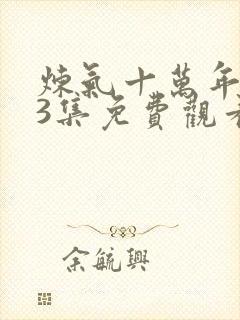 煉氣十萬年
3集免費觀看
余毓興